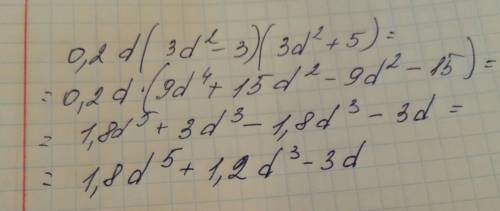 0,2 d ( 3d² - 3 ) ( 3d² + 5 ) =
= 0,2 d · ( 9d⁴ + 15 d² - 9d² - 15 ) =
= 1,8d⁵ + 3d³ - 1,8d³ - 3d =
= 1,8d⁵ + 1,2d³ - 3d